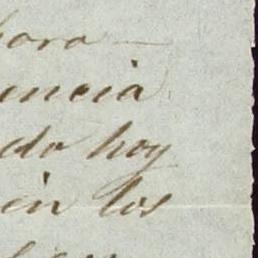 hora —
encia
do hoy
in los